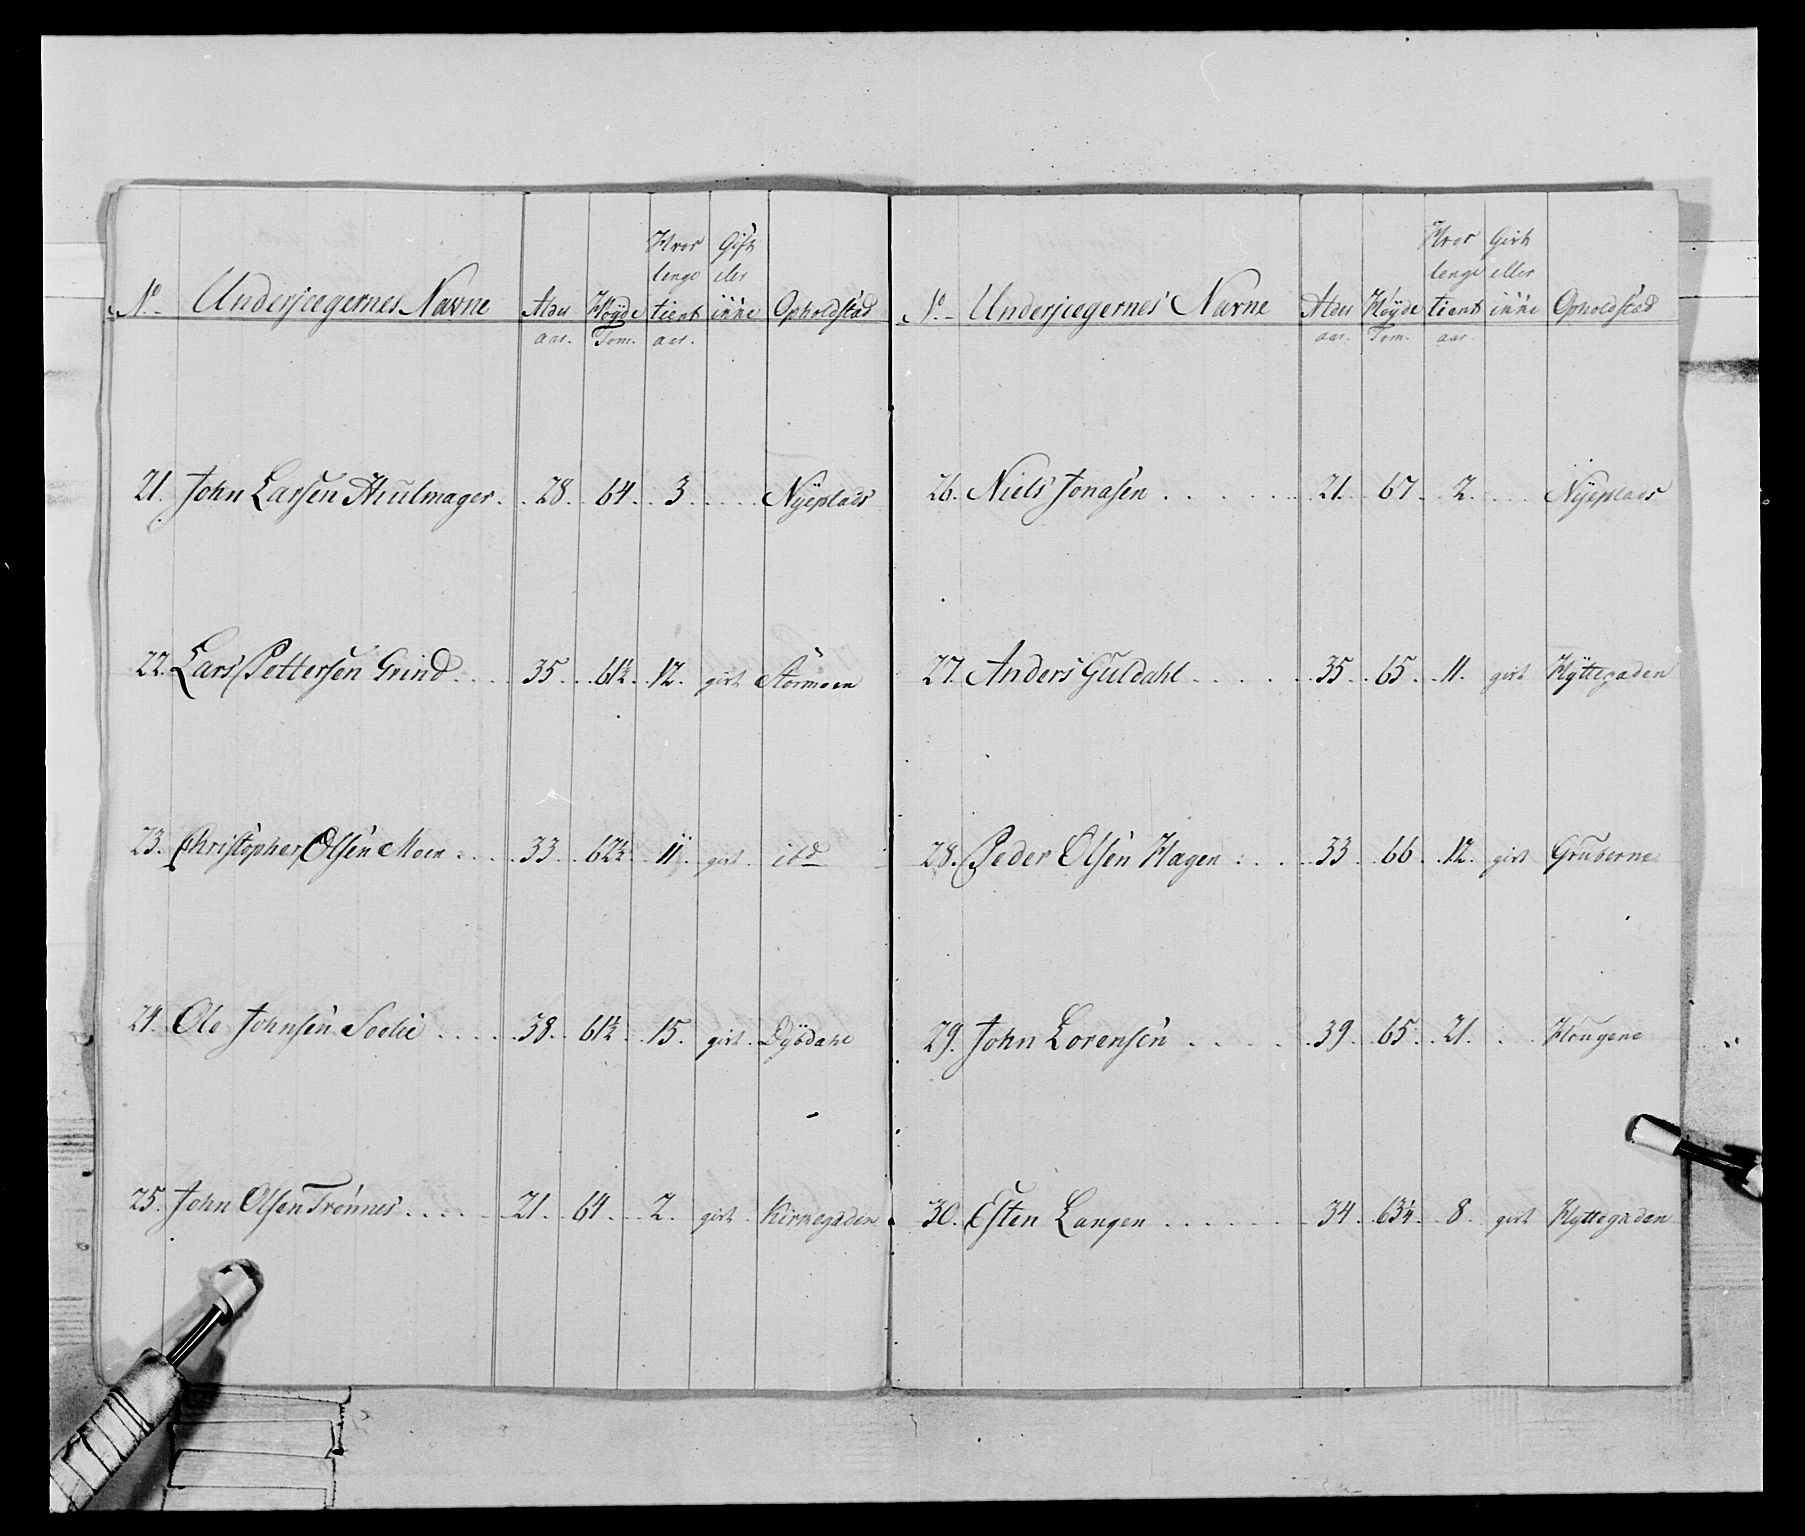 No Underjægernes Navne Alder Høyde Hvor lenge tient Gift eler ikke Opholdstæd
aar. Tom. aar.
21. John Larsen Hiulmager . . 28. 64. 3. . . . . Nÿeplads
22. Lars Pettersen Grind . . . . 35. 61½. 12. gift Stormoen
23. Christopher Olsen Moen . . . . 33. 62½. 11. gift. ibd
24. Ole Johnsen Soelie . . . . 38. 61½. 15. gift. Dÿbdahl
25. John Olsen Trønnes . . . . 21. 64. 2. gift. Kirkegaden
No Underjægernes Navne Alder Høyde Hvor lenge tient Gift eller ikke Opholdstæd
aar. Tom. aar
26. Niels Jonasen . . . . . 21. 67. 2. . . . Nÿeplads
27. Anders Guldahl . . . . . 35. 65. 11. gift Hÿttegaden
28. Peder Olsen Hagen . . . 33. 66. 12. gift Gruberne
29. John Lorensen . . . . 39. 65. 21. . . Hougene
30. Esten Langen . . . . . 34. 63¼. 8. gift Hyttegaden